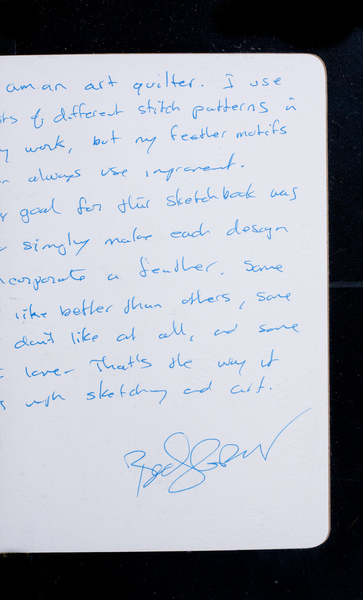 am an art quilter. I use
of different stitch patterns in
work, but my feather motifs
always use improvement.
goal for this sketchbook was
simply make each design
incorporate a feather. Some
like better than others, some
don't like at all, and some
love. That's the way it
with sketching and art.